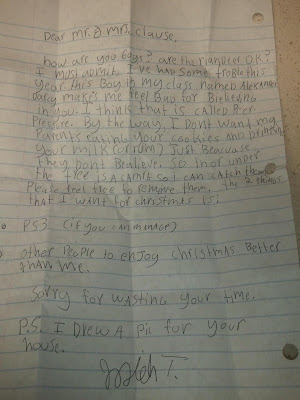 Dear mr. & mrs. clause,
how are you guys? are the riandeer OK?
I must admit I've had some troble this
year this Boy in my class named Alexander
makes me feel Bad for Bielieving
in you. I think that is called Peer
Pressure. By the way, I Dont Want my
Parents eating your cookies and drinking
your milk (or rum) Just Beacause
they Dont Bealieve. So I
the tree is a camra so I can catch them.
Please feel free to remove them. the 2 things
that I want for christmas is:
PS3 (if you can manage)
other People to enjoy christmas better
than me.
Sorry for wasting your time.
P.S. I Drew A Pic for your
house.
T.